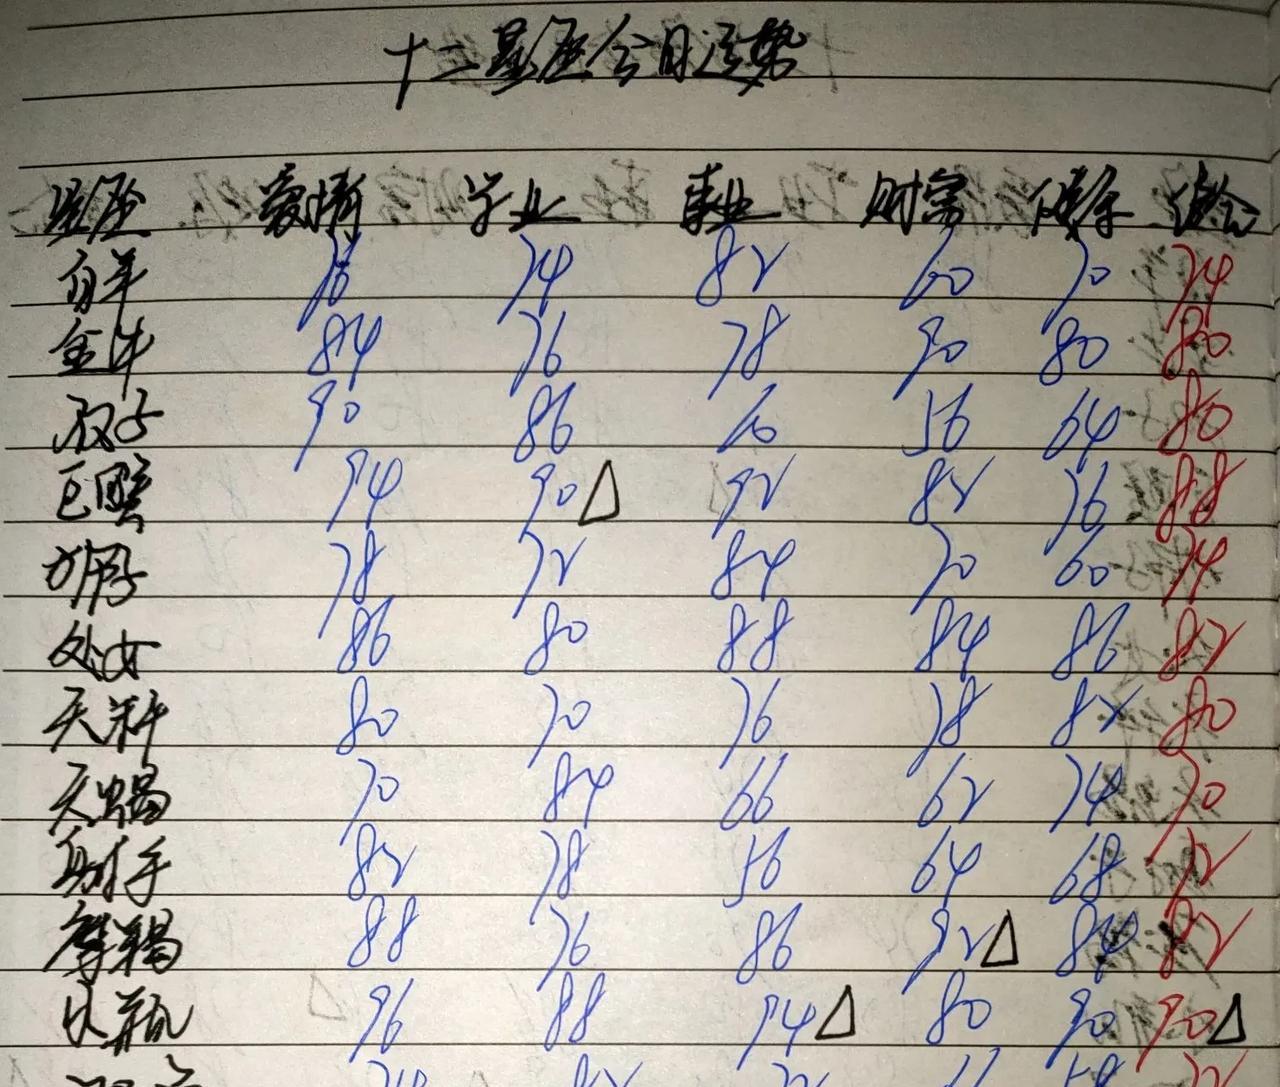 十二星座今日运势
星座 爱情 学业 事业 财富 健康 综合
白羊 76 74 82 60 70 74
金牛 84 76 78 90 80 80
双子 90 86 56 64 80
巨蟹 94 90△ 92 82 76 88
狮子 78 72 84 70 60 74
处女 86 80 88 84 86 82
天秤 80 70 76 78 82 80
天蝎 70 84 66 62 74 70
射手 82 78 56 64 68 72
摩羯 88 76 86 92△ 84 82
水瓶 96 88 94△ 80 90 90△